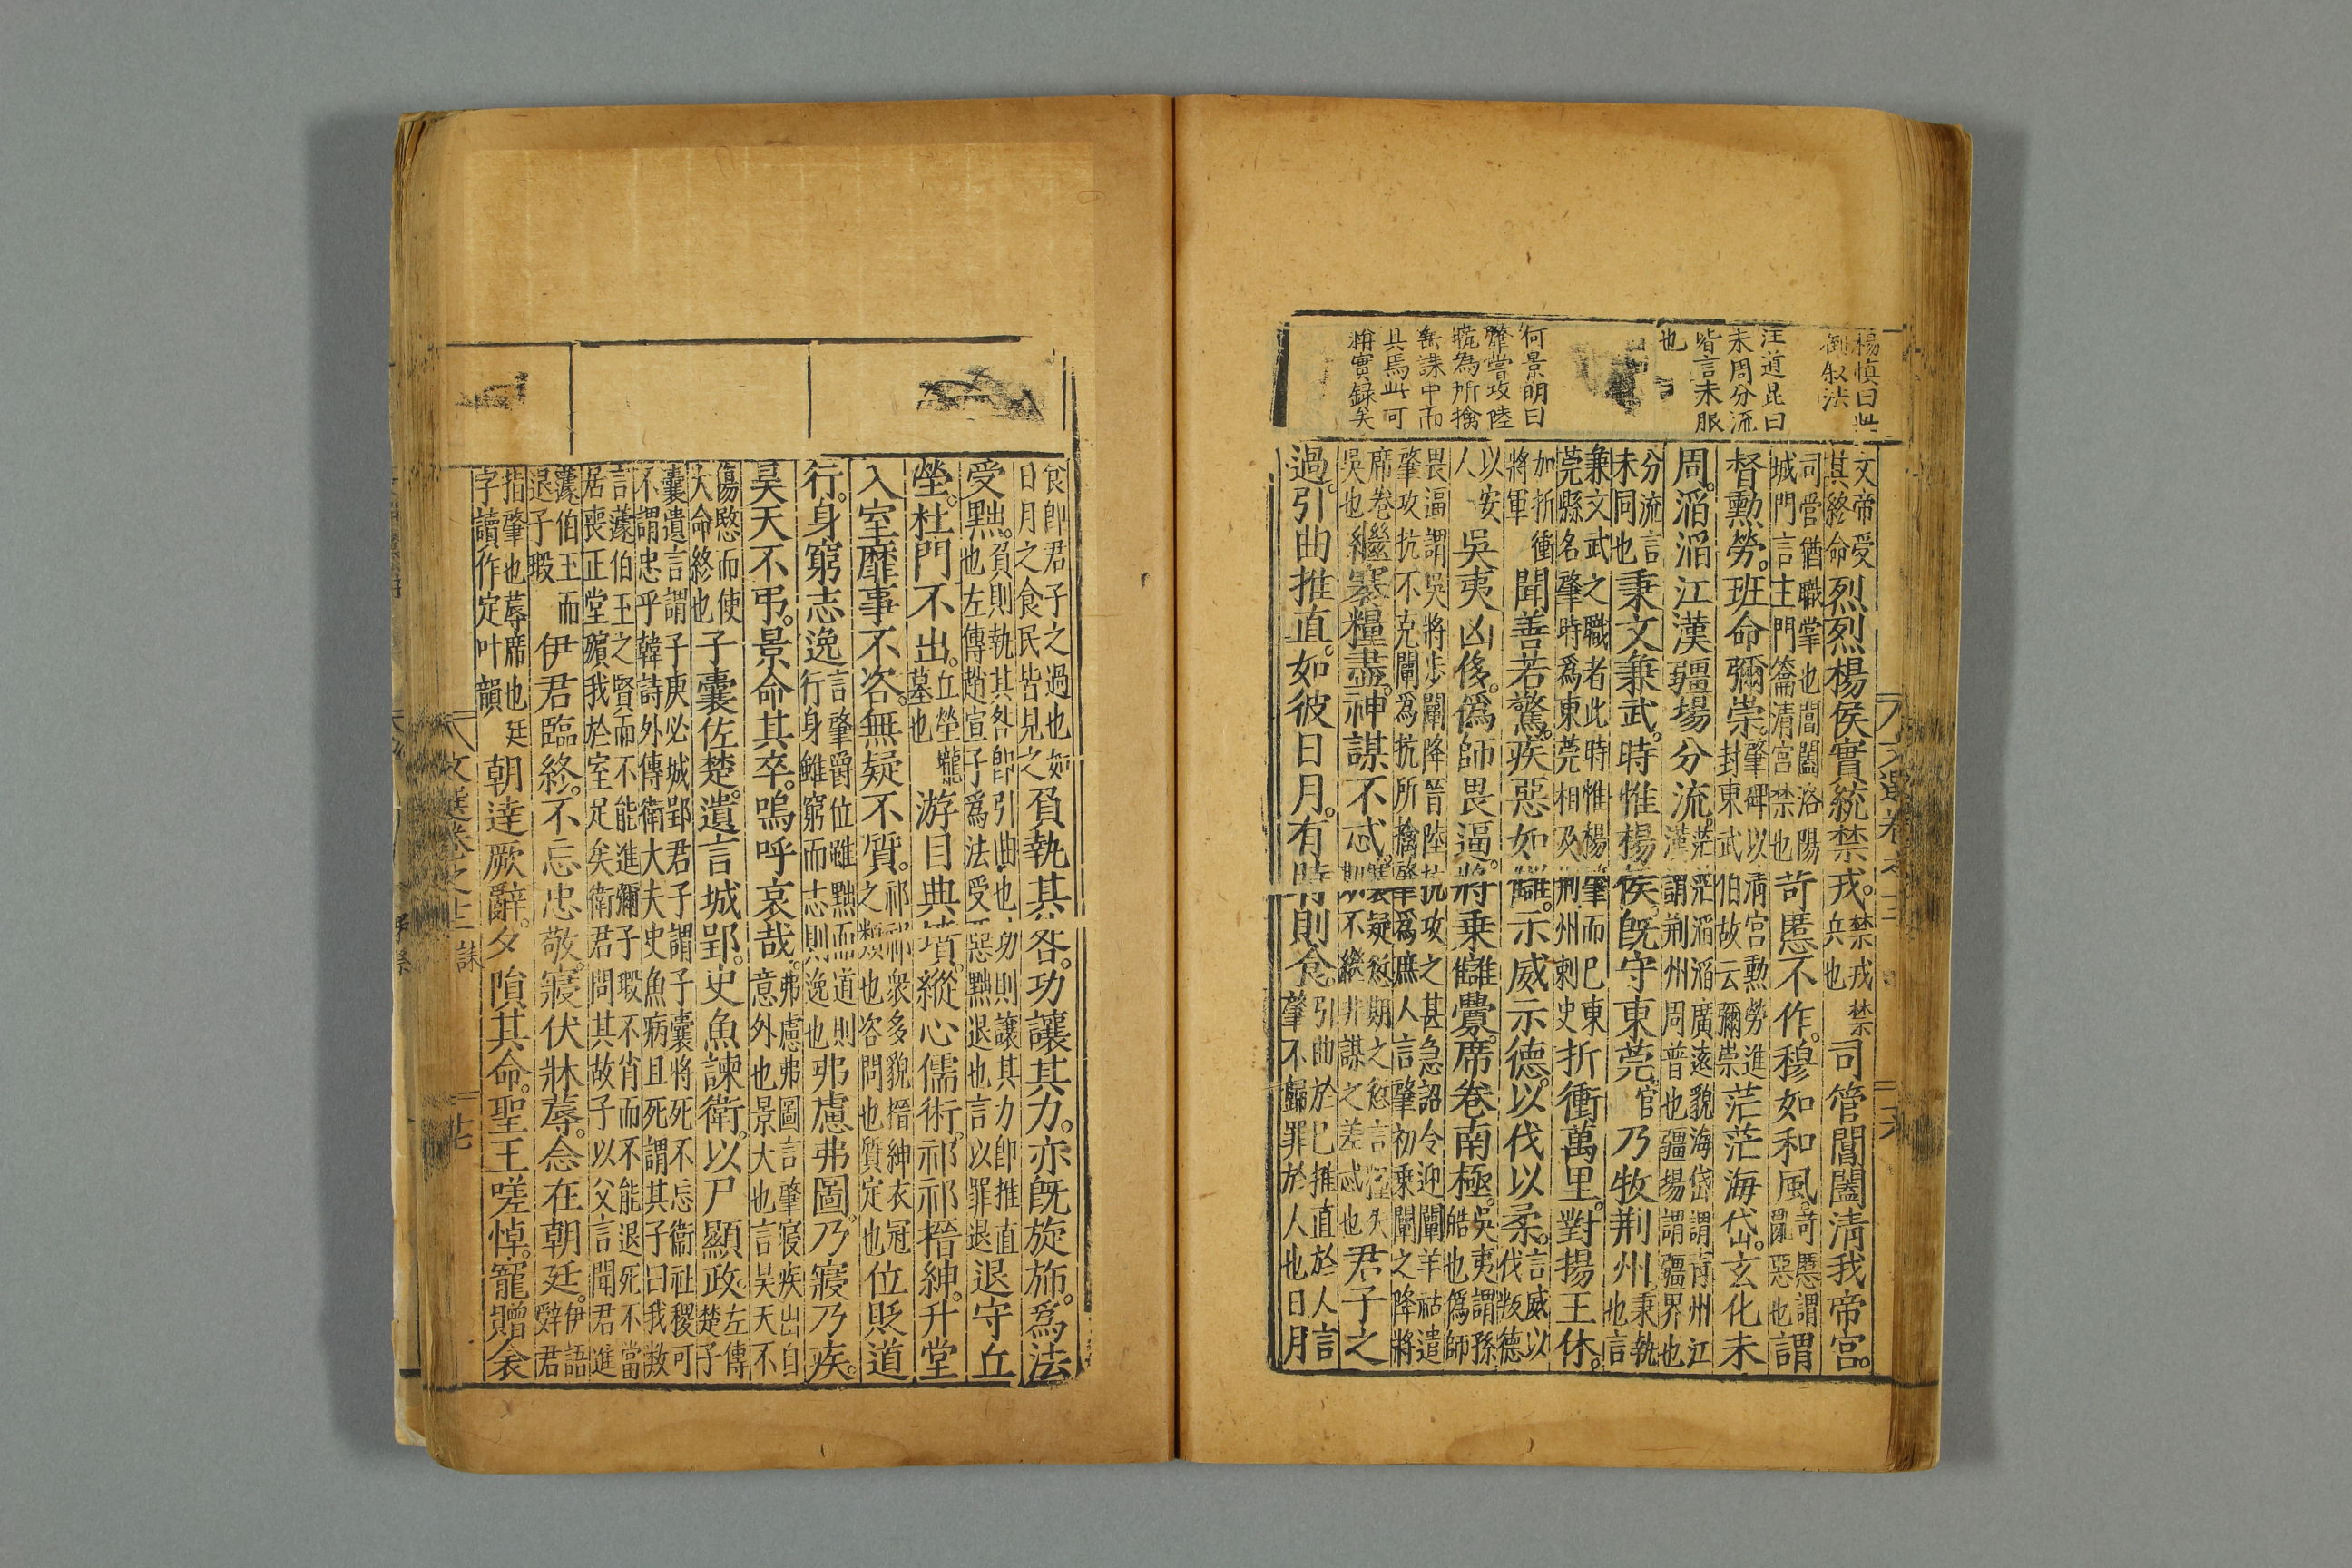 楊慎曰此
御叙法
汪道昆曰
未周分流
皆言未服
也
何景明曰
肇嘗攻陸
抗為所擒
岳誄中而
具焉此可
補實録矣
文帝受
其終命
烈烈楊侯實統禁戎。
禁戎禁
兵也
司管閶闔清我帝宫。
司管猶職掌也閶闔洛陽
城門言主門籥清宫禁也
苛慝不作。穆如和風。
苛慝謂
罪惡也
謂
督勲勞。班命彌崇。
肇碑以清宫勲勞進
封東武伯故云彌崇
茫茫海岱。玄化未
周。滔滔江漢疆場分流。
茫茫滔滔廣遠貌海岱謂青州江
漢謂荆州周普也疆場謂疆界也
分流言
未同也
秉文兼武。時惟楊侯。旣守東莞。
官
乃牧荆州。
秉執
也言
兼文武之職者此時惟楊肇而已東
莞縣名肇時爲東莞相及荆州刺史
折衝萬里。對揚王休。
加折衝
將軍
聞善若驚。疾惡如讎。示威示德。以伐以柔。
言威以
伐叛德
以安
人
吳夷凶侈。僞師畏逼。將乗讎釁。席卷南極。
吳夷謂孫
皓也僞師
畏逼謂吳將步闡降晉陸抗攻之甚急詔令迎闡羊祜遣
肇攻抗不克闡爲抗所擒肇爲庶人言肇初乗闡之降將
席卷
吳也
繼褰糧盡。神謀不忒。
君子之
過。引曲推直。如彼日月。有時則食。
引曲於已推直於人言
肇不歸罪於人也日月
食卽君子之過也如
日月之食民皆見之
負執其咎。功讓其力。亦旣旋斾。爲法
受黜。
負則執其咎卽引曲也功則讓其力卽推直
也左傳趙宣子爲法受惡黜退也言以罪退
退守丘
塋。杜門不出。
丘塋壠
墓也
游目典墳。縱心儒術。祁祁搢紳。升堂
入室靡事不咨。無疑不質。
祁祁衆多貌搢紳衣冠
之類也咨問也質定也
位貶道
行。身窮志逸
言肇爵位雖黜而道則
行身雖窮而志則逸也
弗慮弗圖。乃寢乃疾。
昊天不弔。景命其卒。嗚呼哀哉。
弗慮弗圖言肇寢疾出自
意外也景大也言昊天不
傷愍而使
大命終也
子囊佐楚。遺言城郢。史魚諫衛。以尸顯政。
左傳
楚子
囊遺言謂子庚必城郢君子謂子囊將死不忘衞社稷可
不謂忠乎韓詩外傳衛大夫史魚病且死謂其子曰我數
言蘧伯王之賢而不能進彌子瑕不肖而不能退死不當
居喪正堂殯我於室足矣衛君問其故子以父言聞君進
蘧伯王而
退子瑕
伊君臨終。不忘忠敬。寢伏牀蓐。念在朝廷。
伊語
辭君
指肇也蓐席也廷
字讀作定叶韻
朝達厥辭。夕隕其命。聖王嗟悼。寵贈衾